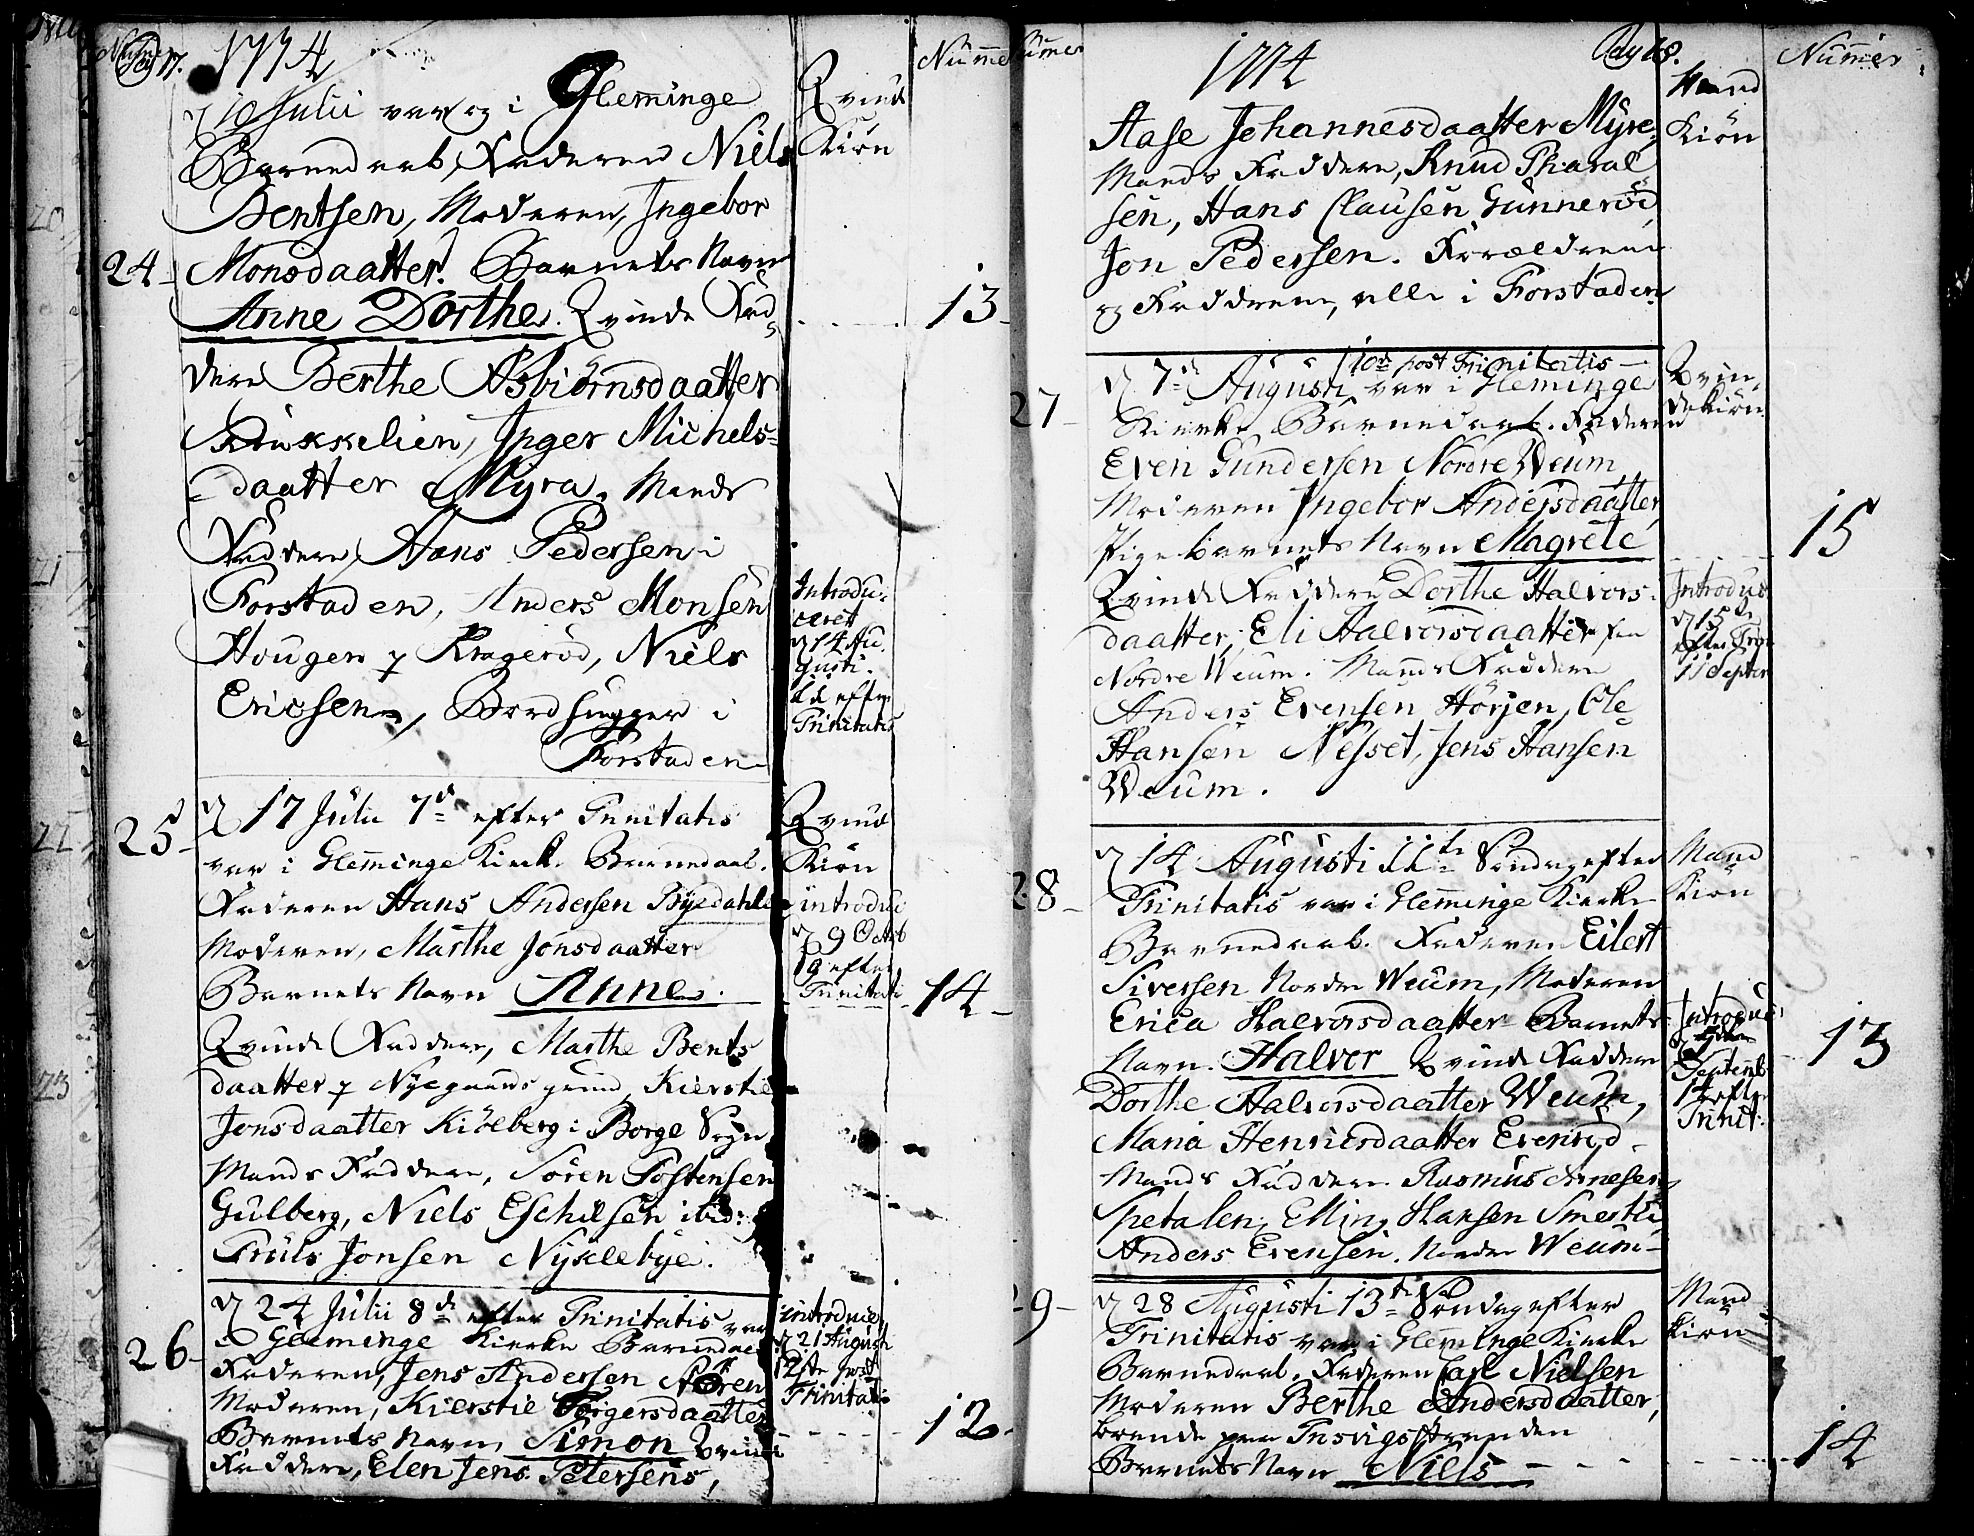 Numer
pag 17.
1774
Qvind
Kiön
Numme
d 10 Julii var og i Gleminge
Barnedaab, Faderen Niels
Bentsen, Moderen, Ingebor
24 Monsdaatter. Barnets Navn
Anne Dorthe. Qvinde Fad=
13
dere Berthe Asbiörnsdaatter
Inger Michels=
daatter Myra. Mands
Faddere, Hans Pedersen i
Forstaden, Anders Monsen
Hougen p Kragerød, Niels
Ericsen, Bordhugger i
Forstaden
Introdu-
ceret
d 14 Au
gusti.
11 efter
Trinitatis
25 d 17 Julii 7de efter Trinitatis
var i Gleminge Kirck. Barnedaab.
Faderen Hans Andersen Byedahle
Moderen, Marthe Jonsdaatter
Barnets Navn Anne.
Qvinde Faddere, Marthe Bents
daatter p Nyegaards grund, Kierstie
Jonsdaatter Kiölberg i Borge Sogn
Mands Faddere, Sören Tostensen
Gulberg, Niels Eschilsen ibid:
Truls Jonsen Nyklebye.
Qvind
Kiön
introduc
d 9 Octob
19 efter
Trinitati
14
26 d 24 Julii 8de efter Trinitatis var
i Gleminge Kierke Barnedaab
Faderen, Jens Andersen Nören
Moderen, Kierstie Torgersdaatter
Barnets Navn, Simon Qvinde
Faddere, Elen Jens Petersens,
introduc
d 21 August
12te post
Trinitatis
12
Numer
1774
Pag 18.
Mand
Kiön
Numer
Aase Johannesdaatter Myre,
Mands Faddere, Knud Tharal
sen, Hans Clausen Gunneröd,
Jon Pedersen. Forældrene
og Faddrene, alle i Forstaden
27 d 7de Augusti 10de post Trinitatis var i Gleminge
Kierke Barnedaab. Faderen
Even Gundersen Nordre Weum
Moderen Ingebor Andersdaatter,
Pigebarnets Navn Magrete
Qvinde Faddere Dorthe Halvors-
daatter, Eli Halvorsdaatter
Nordre Weum. Mands Faddere
Anders Evensen Hörjen, Ole
Hansen Nesset, Jens Hansen
Weum.
Qvin-
dekiön
Introduc
d 15de
efter Trin
11 Septer
15
28 d 14 Augusti 11te Söndag efter
Trinitatis var i Gleminge Kierke
Barnedaab. Faderen Eilert
Siversen Nordre Weum, Moderen
Erica Halvorsdaatter Barnets
Navn. Halvor Qvinde Faddere
Dorthe Halvorsdaatter Weum,
Maria Henricsdaatter Evenröd.
Mands Faddere Rasmus Arnesen
Spetalen, Elling Hansen Smertu
Anders Evensen. Nordre Weum
Mand
Kiön
Introduc
Septemb
14 efter
Trinit:
13
29 d 28 Augusti 13de Söndag efter
Trinitatis var i Gleminge Kiercke
Barnedaab. Faderen Carl Nielsen
Moderen Berthe Andersdaatter,
boende paa Trosvigstranden
Barnets Navn Niels
Mand
Kiön
14